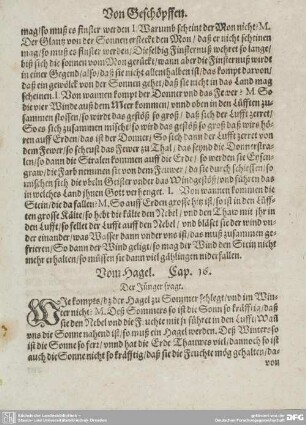 Von Geschöpffen.
mag/ so muß es finster werden I. Warumb scheint der Mon nicht: M.
Der Glantz von der Sonnen ersteckt den Mon / daß er nicht scheinen
mag/ so muß es finster werden/ Dieselbig Finsternuß wehret so lange/
biß sich die sonnen vom Mon gerückt/ wann aber die Finsternuß wirdt
in einer Gegend/ also/ daß sie nicht allenthalben ist/ das kompt darvon/
daß ein gewölck von der Sonnen gehet/ daß sie nicht in das Land mag
scheinen. I. Von wannen kompt der Donner vnd das Fewer: M. So
die vier Winde auß dem Meer kommen / vnnd oben in den Lüfften zu-
sammen stossen/ so wirdt das gestöß so groß/ daß sich der Lufft zerret/
So es sich zusammen mischt/ so wird das gestöß so groß daß wirs hö-
ren auff Erden/ das ist der Donner/ So sich dann der Lufft zerret von
dem Fewer/ so scheußt das Fewer zu Thal / das seynd die Donnerstra-
len/ so dann die Stralen kommen auff die Erde / so werden sie Eysen-
graw/ die Farb nemmen sie von dem Fewer/ da sie durch schiessen/ so
mischen sich die vbeln Geister vnder das Windgestöß/ vnd führen das
in welches Land ihnen Gott verhenget. I. Von wannen kommen die
Stein/ die da fallen: M. So auff Erden grosse hitz ist/ so ist in den Lüff-
ten grosse Kälte/ so hebt die kälte den Nebel / vnd den Thaw mit ihr in
den Lufft/ so fellet der Lufft auff den Nebel / vnd bläset sie der wind vn-
der einander/ was Wasser dann vnder vns ist/ das muß zusammen ge-
frieren/ So dann der Wind geligt/ so mag der Wind den Stein nicht
mehr erhalten/ so müssen sie dann viel gählingen nider fallen.
Vom Hagel. Cap. 16.
Der Jünger fragt.
WJe kompts/ dz der Hagel zu Sommer schlegt/ vnd im Win-
ter nicht: M. Deß Sommers so ist die Sonn so kräfftig/ daß
sie den Nebel vnd die Feuchte mit jr führet in den Lufft/ Wañ
vns die Sonne nahend ist/ so muß ein Hagel werden. Deß Winters/ so
ist die Sonne so ferr/ vnnd hat die Erde Thauwes viel/ dannoch so ist
auch die Sonne nicht so kräfftig/ daß sie die Feuchte mög gehalten/ das
von